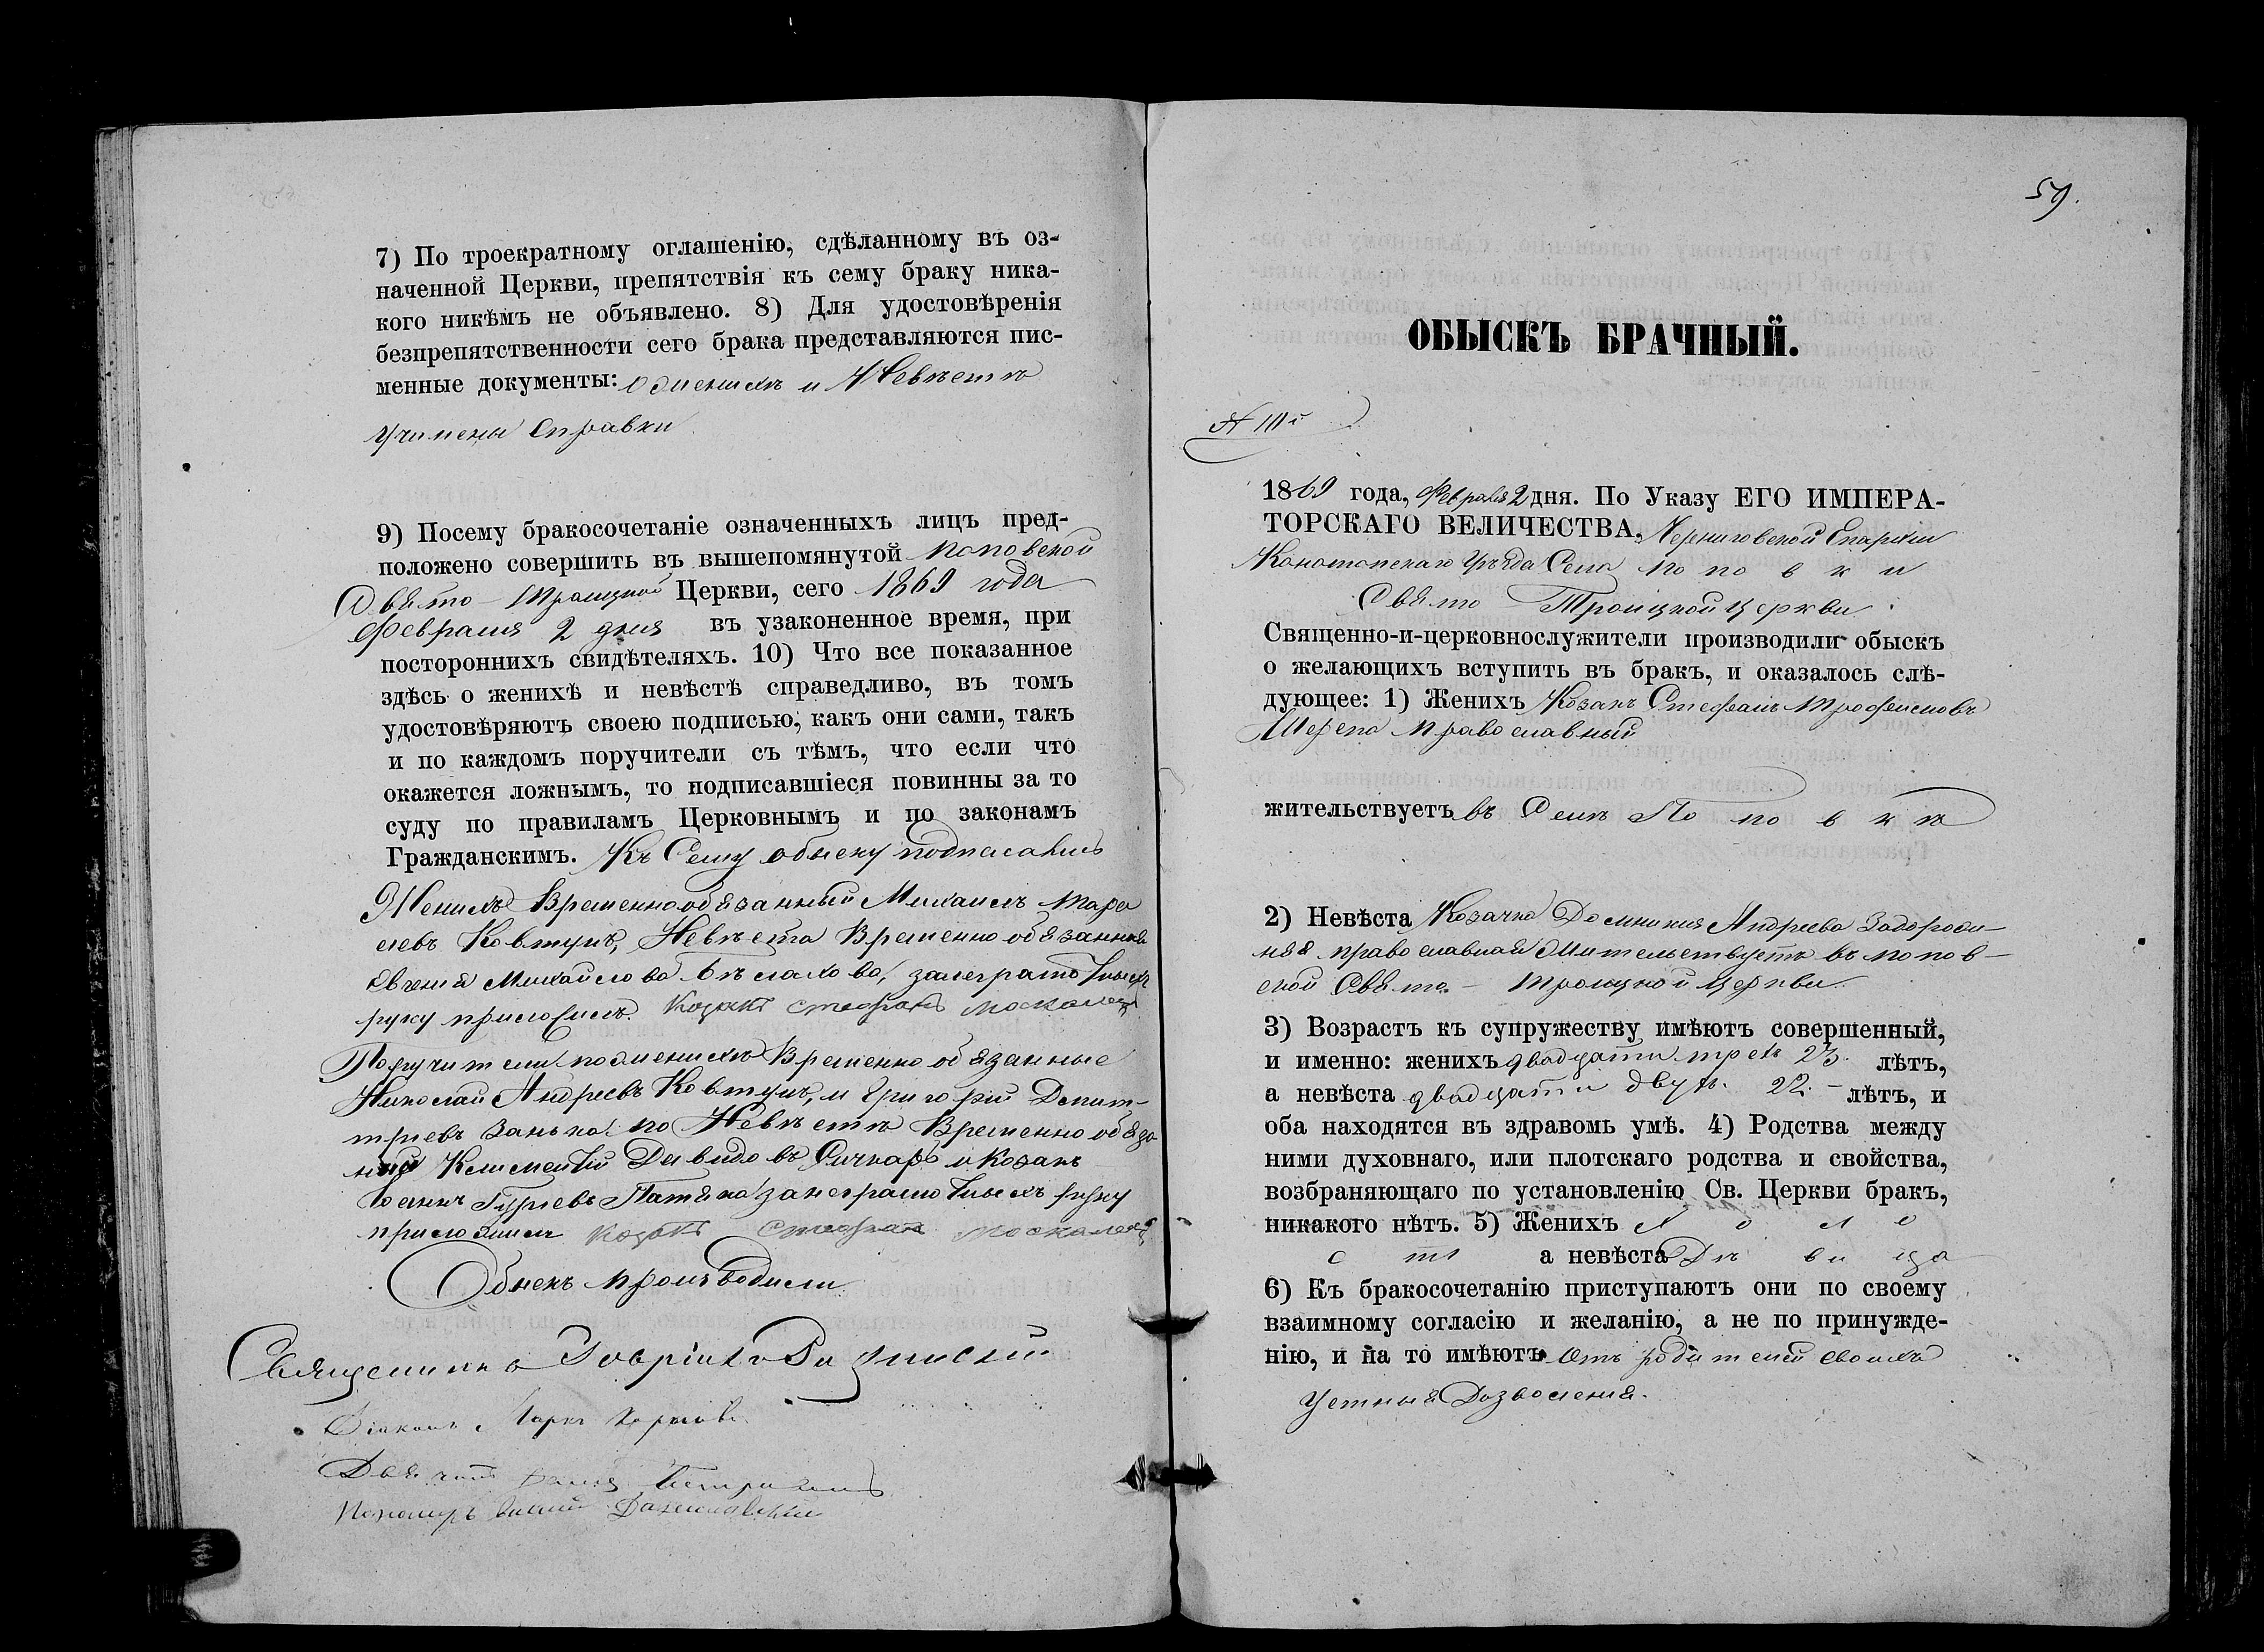 7) По троекратному оглашенію, сдѣланному въ оз-
наченной Церкви, препятствія къ сему браку ника-
кого никѣмъ не объявлено. 8) Для удостовѣренія
безпрепятственности сего брака представляются пис-
менные документы: о женихѣ и Невѣстѣ
учинены Справки
9) Посему бракосочетаніе означенныхъ лицъ пред-
положено совершить въ вышепомянутой Поповской
Свято-Троицкой Церкви, сего 1869 года
Февраля 2 дня въ узаконенное время, при
постороннихъ свидѣтеляхъ. 10) Что все показанное
здѣсь о женихѣ и невѣстѣ справедливо, въ томъ
удостовѣряютъ своею подписью, какъ они сами, такъ
и по каждомъ поручители съ тѣмъ, что если что
окажется ложнымъ, то подписавшіеся повинны за то
суду по правиламъ Церковнымъ и по законамъ
Гражданскимъ. Къ Сему обыску подписались
Женихъ Временнообязанный Михаилъ Тара
сіевъ Ковтунъ, Невѣста Временно обязанная
Евгенія Михайлова
руку приложилъ Козакъ Стефанъ Москалецъ
Поручители по женихѣ Временно обязанные
Николай Андреевъ Ковтунъ, и Григорій Димит-
ріевъ Занька по Невѣстѣ Временно обяза
ный Климентій Давидовъ и Козакъ
Іоаннъ Гуріевъ руку
приложилъ Козакъ Стефанъ Москалецъ
Обыскъ производили
Священникъ
Діаконъ Маркъ
Дьячекъ
Пономарь
59.
ОБЫСКЪ БРАЧНЫЙ.
1869 года, Февраля 2 дня. По Указу ЕГО ИМПЕРА-
ТОРСКАГО ВЕЛИЧЕСТВА, Черниговской Епархіи
Конотопскаго Уѣзда Села Поповки
Свято Троицкой церкви
Священно-и-церковнослужители производили обыскъ
о желающихъ вступить въ бракъ, и оказалось слѣ-
дующее: 1) Женихъ Козакъ Стефанъ Трофимовъ
Шерепа Православный
жительствуетъ въ Селѣ Поповкѣ
2) Невѣста Козачка Домникія Андреева Задорож-
няя православная жительствуетъ въ попов-
ской Свято-Троицкой церкви
3) Возрастъ къ супружеству имѣютъ совершенный,
и именно: женихъ двадцати трехъ 23. лѣтъ,
а невѣста двадцати двухъ. 22.- лѣтъ, и
оба находятся въ здравомъ умѣ. 4) Родства между
ними духовнаго, или плотскаго родства и свойства,
возбраняющаго по установленію Св. Церкви бракъ,
никакого нѣтъ. 5) Женихъ холо
стъ а невѣста Дѣвица
6) Къ бракосочетанію приступаютъ они по своему
взаимному согласію и желанію, а не по принужде-
нію, и на то имѣютъ Отъ родителей своихъ
Устныя Дозволенія.